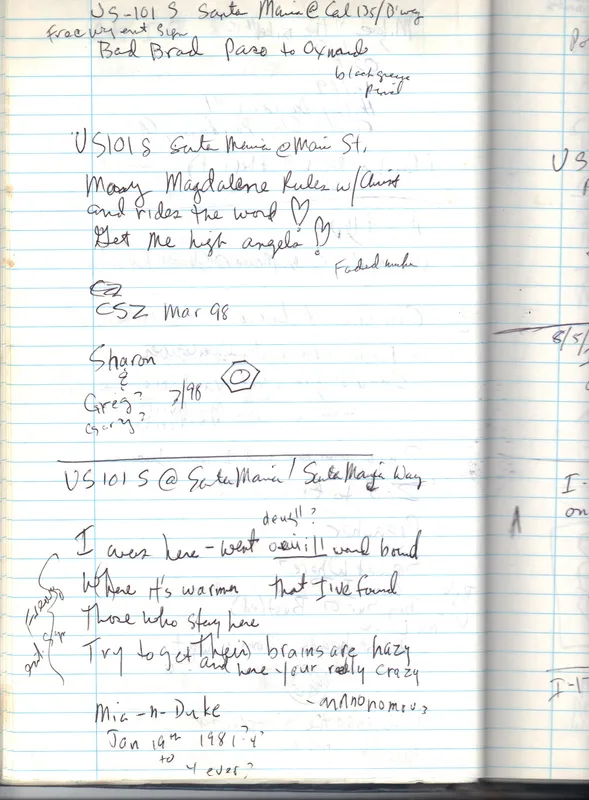 US-101 S Santa Maria @ Cal 135/B'way
Freeway ent sign
Bad Brad Paso to Oxnard
black grease
pencil
US101 S Santa Maria @ Main St.
Mary Magdalene Rules w/Christ
and rides the word ♡
Get me high angels
Faded
CSZ Mar 98
Sharon
&
Greg? 7/98
Gary?
US 101 S @ Santa Maria / Santa Maria Way
I was here - went bound
Where it's warmer that I've found
Those who stay here
Try to get Their brains are hazy
and here your really crazy
- annonomous
Freeway
ent. sign
Mia -n- Duke
Jan 19th 1981?4?
to
4 ever?
US
8/5/
I-
on
I-1